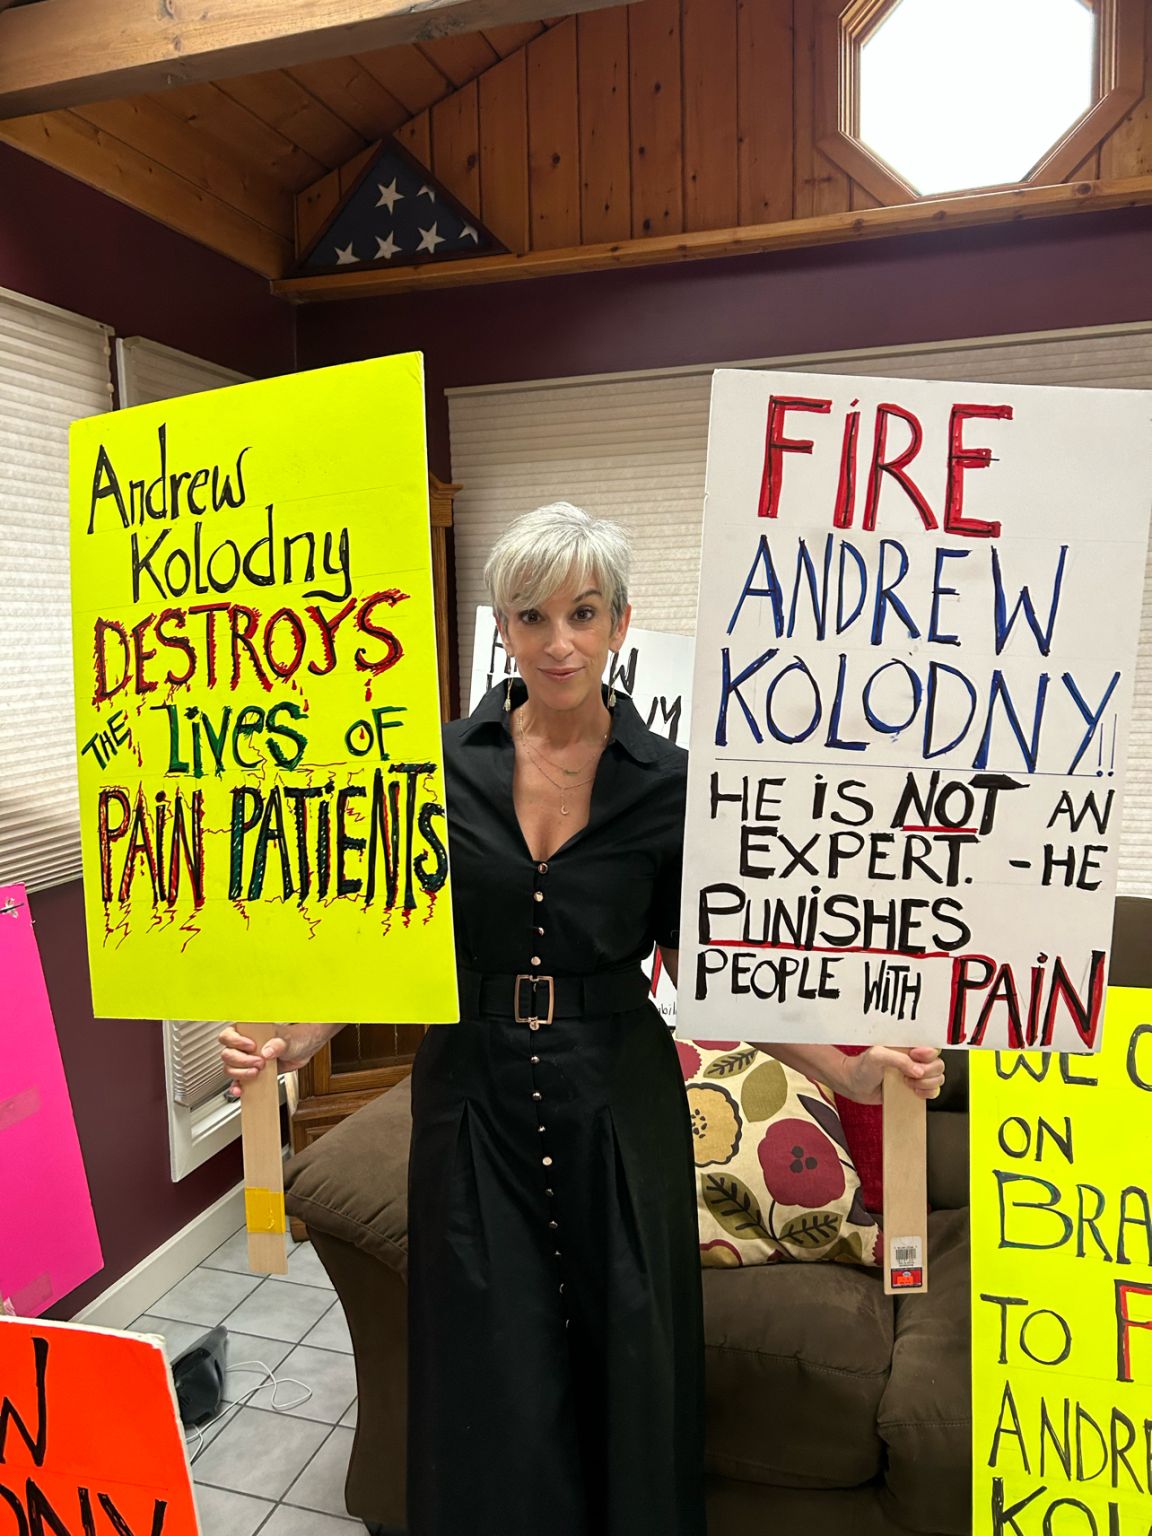 Andrew
Kolodny
DESTROYS
THE Lives OF
PAIN PATIENTS
FIRE
ANDREW
KOLODNY!!
HE IS NOT AN
EXPERT. - HE
PUNISHES
PEOPLE WITH PAIN
WE
ON
BRA
TO F
ANDRE
KOL
W
DNY